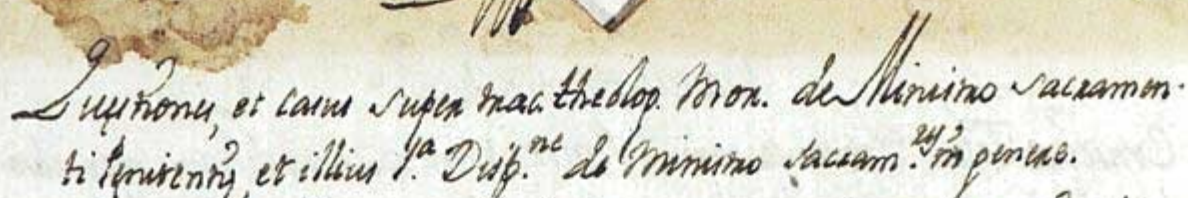 Questiones, et casus super trac. theolog. Mor. de Ministro sacramen-
ti Penitentiȩ, et illius 1.ª Disp.ne de Ministro sacram.rũ in genere.